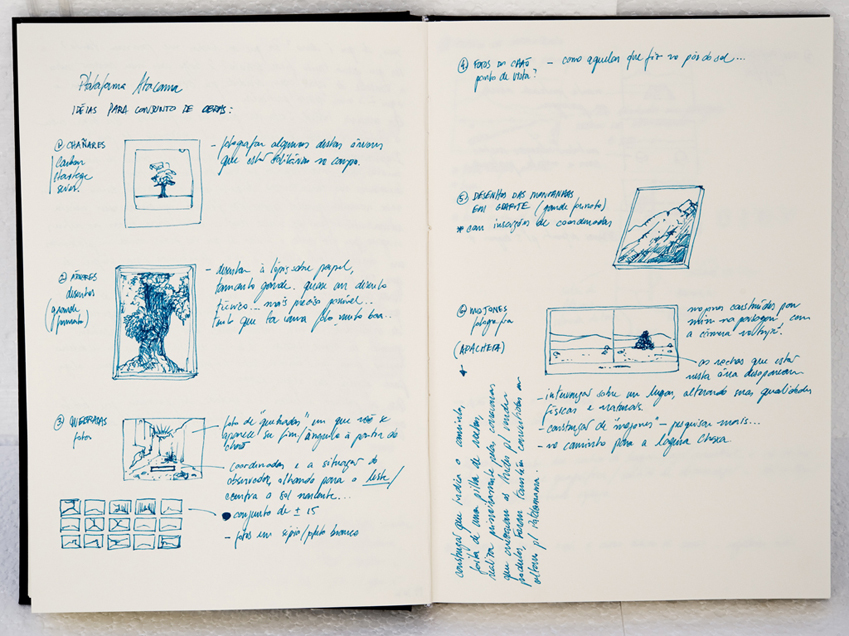 Plataforma Atacama
IDÉIAS PARA CONJUNTO DE OBRAS:
① CHAÑARES
- fotografar algumas destas árvores
que estão solitárias no campo.
② ÁRVORES
desenhos
(grande
formato)
- desenhar à lápis sobre papel,
tamanho grande. quase um desenho
técnico... mais preciso possível...
tenho que ter uma foto muito boa...
③ QUEBRADAS
fotos
foto de "quebradas" em que não se
aparece seu fim/ângulo à partir do
chão
coordenadas e a situação do
observador, olhando para o leste/
contra o sol nascente...
conjunto de ± 15
- fotos em sépia/preto branco
④ FOTOS DO CHÃO - como aquelas que fiz no pôr do sol...
ponto de vista?
⑤ DESENHO DAS MONTANHAS
EM GRAFITE (grande formato)
* com inscrições de coordenadas
⑥ MOJONES
fotografia
(APACHETA)
*
mojones construídos por
mim na paisagem com
a câmera
as rochas que estão
nesta área desaparecem
- intervenção sobre um lugar, alterando suas qualidades
físicas e naturais.
- construção de "mojones" - pesquisar mais...
- no caminho para a laguna Chaxa
construção que indica o caminho,
feita de uma pilha de pedras,
realizada primeiramente pelas caravanas
que cruzavam os Andes p/ vender
produtos. Foram também construídas em
p/ Pachamama..